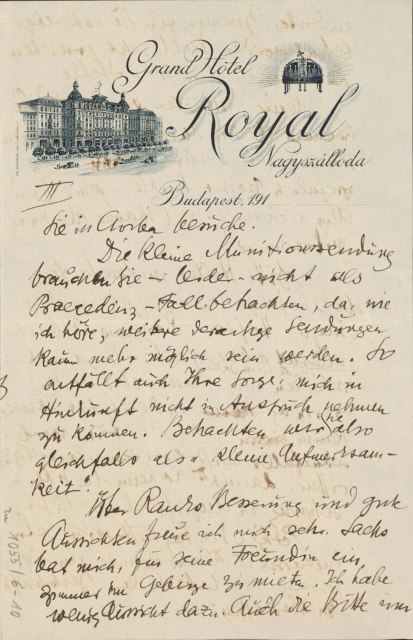 Grand Hôtel
Royal
Nagyszálloda
Budapest, 191
III
Sie in Aorba besuche.
Die kleine Munitionssendung
brauchen Sie – leider – nicht als
Praecedenz-Fall betrachten, da, wie
ich höre, weitere derartige Sendungen
kaum mehr möglich sein werden. So
entfällt auch Ihre Sorge, mich in
Hinkunft nicht in Anspruch nehmen
zu können. Betrachten Sie also
gleichfalls als „kleine Aufmerksam-
keit".
Über Rankos Besserung und gute
Aussichten freue ich mich sehr. Sachs
bat mich, für seine Freundin ein
Zimmer im Gebirge zu mieten. Ich habe
wenig Aussicht dazu. Auch die Bitte um
zu 1053/6-10